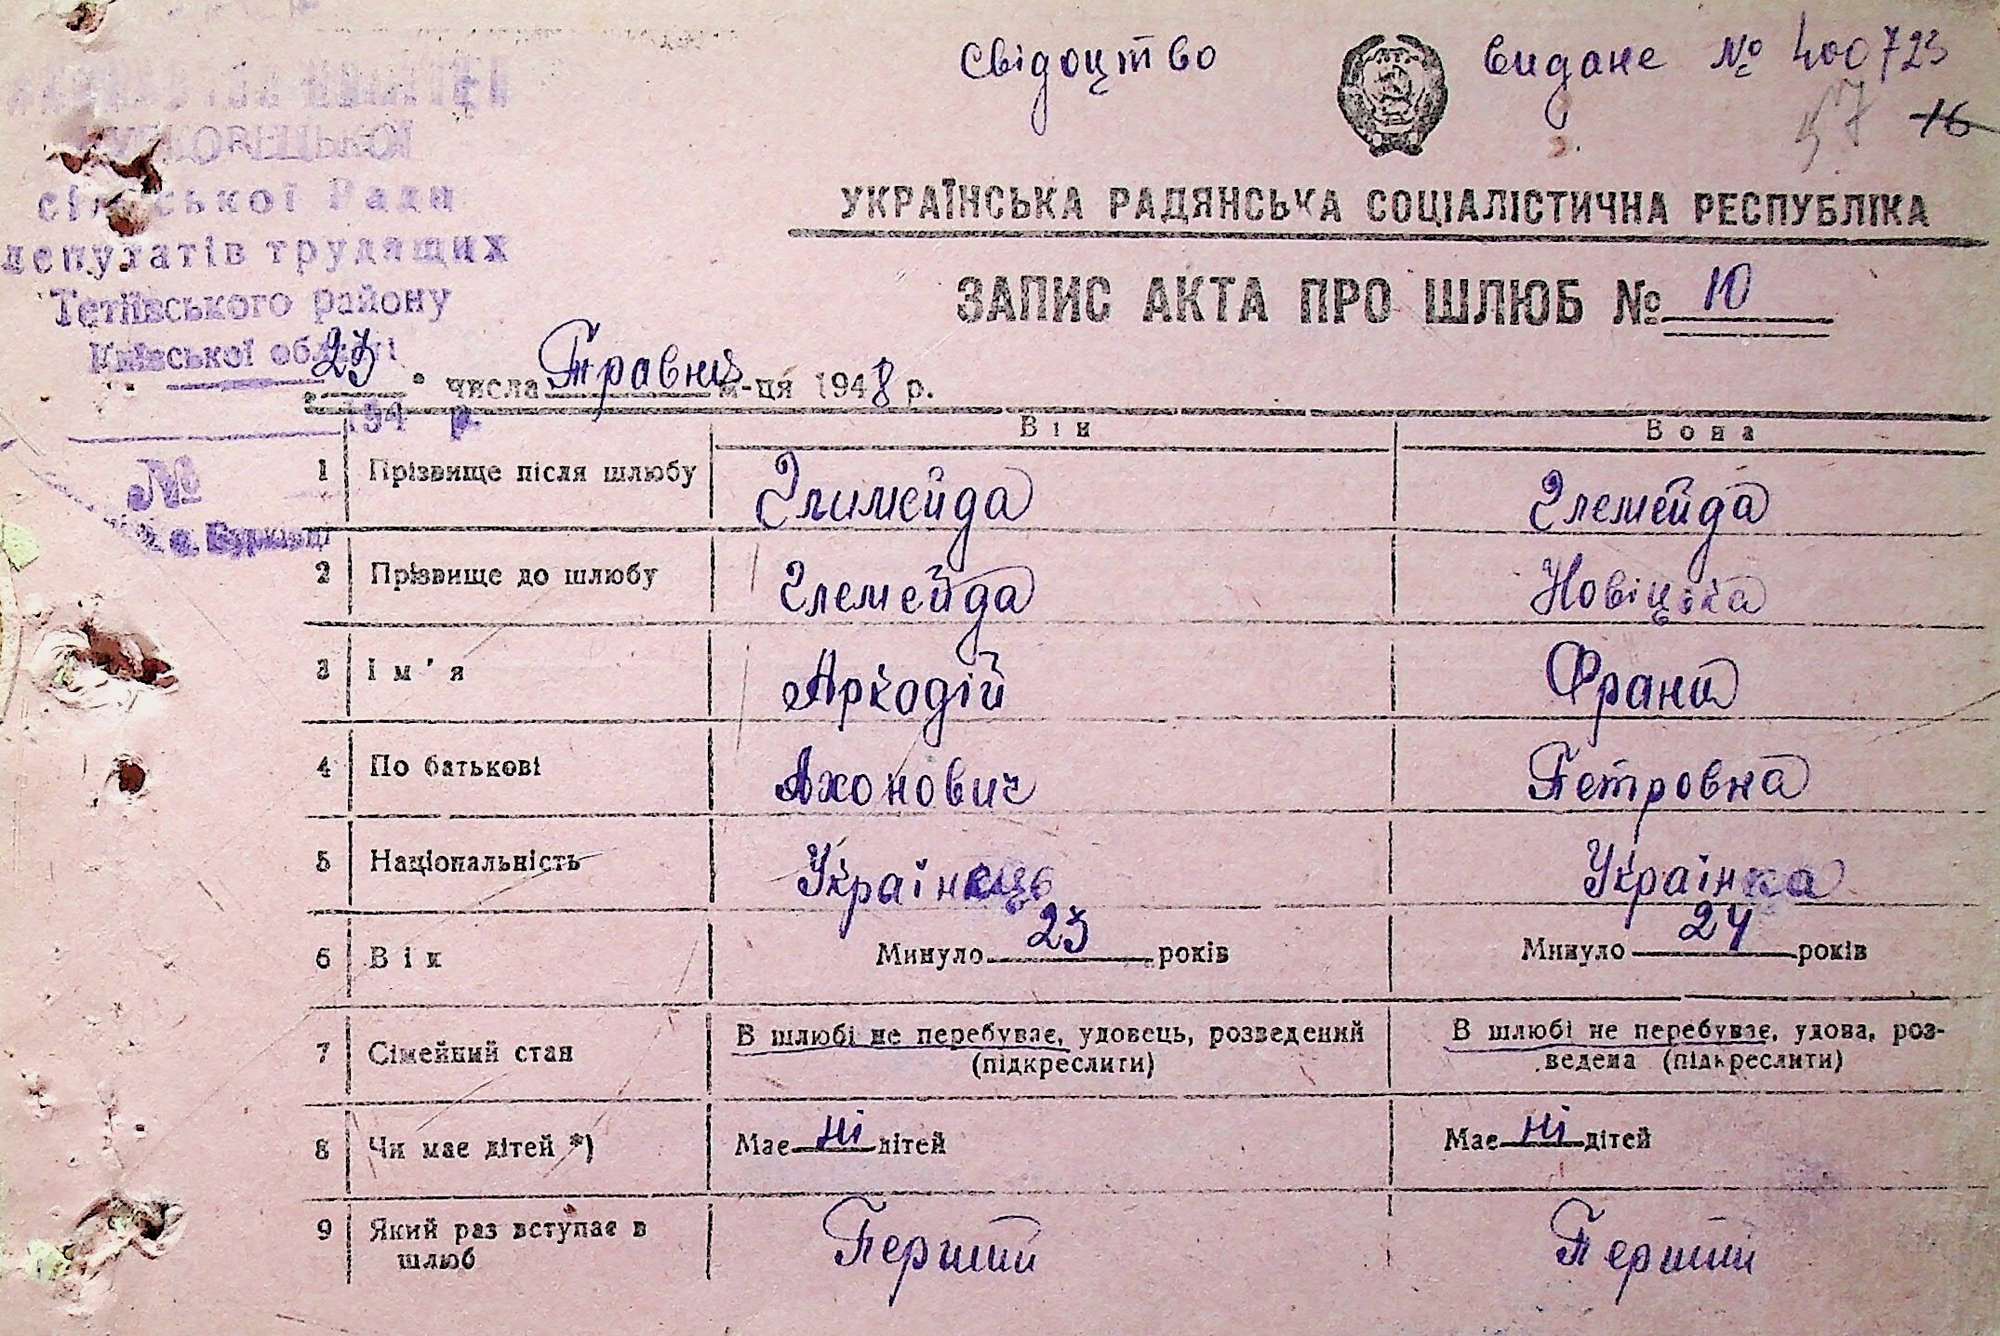 Свідоцтво видане № 400723
57 16
сільської Ради
депутатів трудящих
Тетіївського району
Київської області
194 р.
№
УКРАЇНСЬКА РАДЯНСЬКА СОЦІАЛІСТИЧНА РЕСПУБЛІКА
ЗАПИС АКТА ПРО ШЛЮБ № 10
23 числа Травня м-ця 1948 р.
Він Вона
1 Прізвище після шлюбу Глимейда Глемейда
2 Прізвище до шлюбу Глемейда Новіцька
3 Ім'я Аркодій Франя
4 По батькові Ахонович Петровна
5 Національність Українець Українка
6 Вік Минуло 23 років Минуло 24 років
7 Сімейний стан В шлюбі не перебуває, удовець, розведений (підкреслити) В шлюбі не перебуває, удова, роз-
ведена (підкреслити)
8 Чи має дітей *) Має ні дітей Має ні дітей
9 Який раз вступає в шлюб Перший Перший